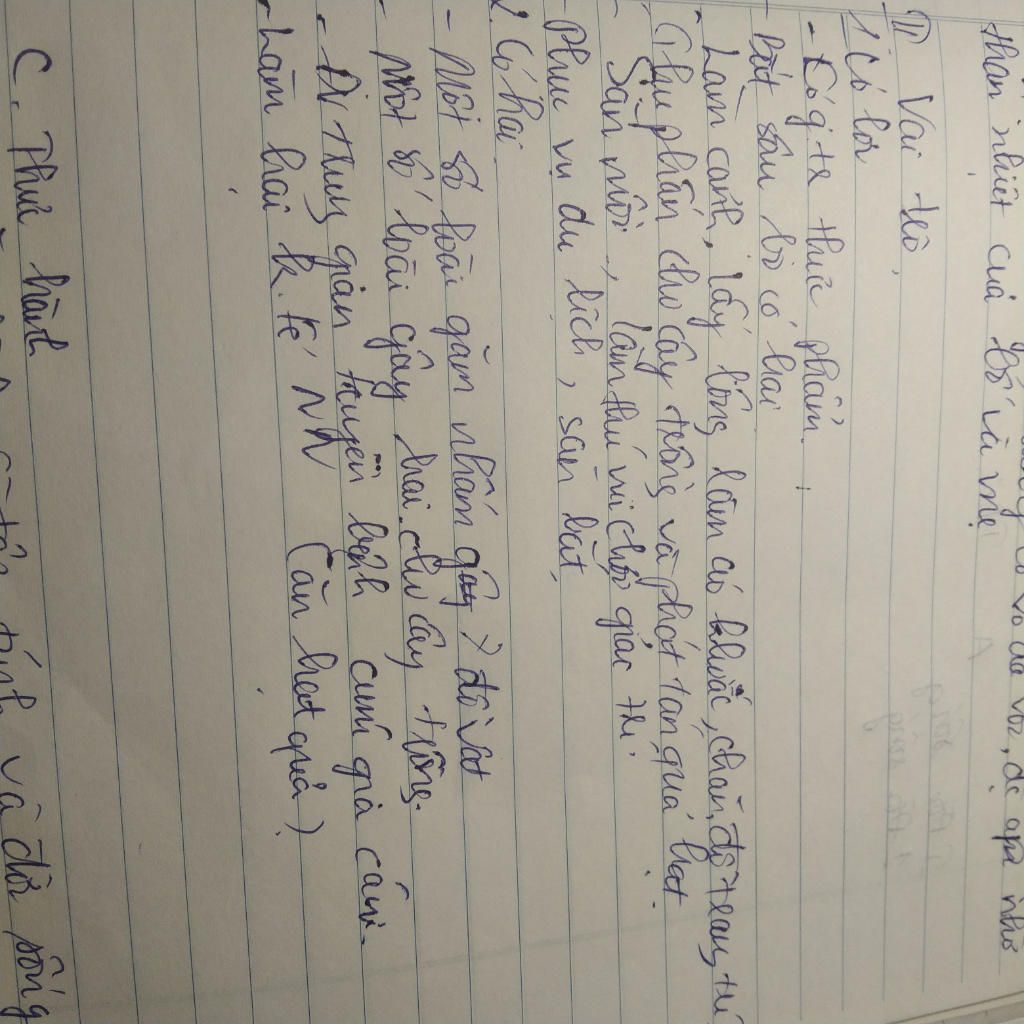 thân nhiệt của bố và mẹ
II Vai trò
1 Có lợi
- Có g.trị thực phẩm
- Bắt sâu bọ có hại
- Làm cảnh, lấy lông làm áo khoác, chăn, đồ trang trí
- Thụ phấn cho cây trồng và phát tán quả hạt
- Săn mồi, làm thú nuôi
- Phục vụ du lịch, săn bắt
2. Có hại
- Một số loài gặm nhấm gây đồ vật
- Một số loài gây hại cho cây trồng.
- ĐV trung gian truyền bệnh cúm gia cầm.
- Làm hại k.tế NN (ăn hạt quả)
C. Thực hành
tính và đời sống